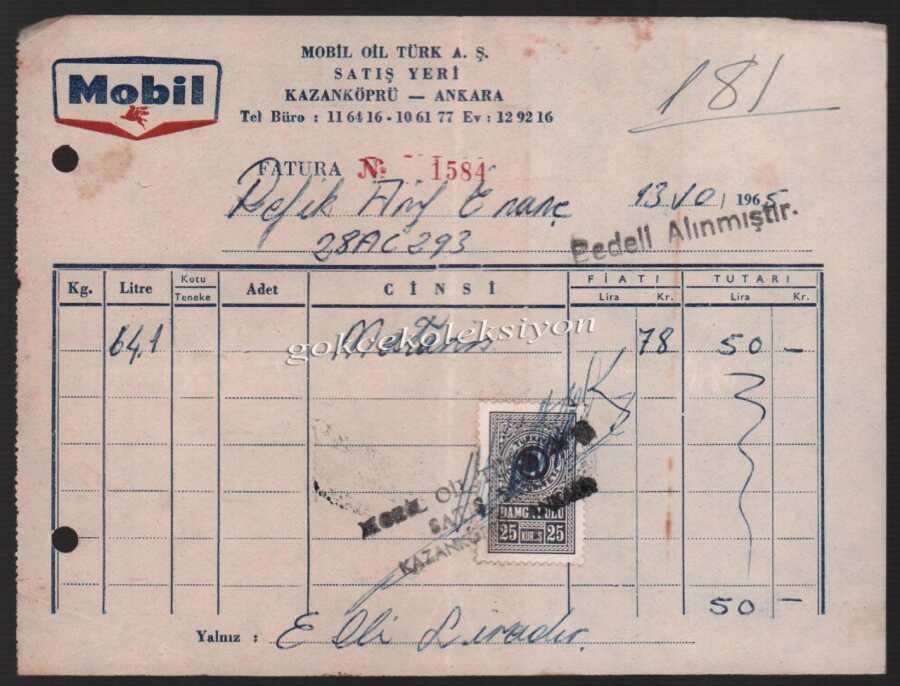 Mobil
MOBİL OİL TÜRK A. Ş.
SATIŞ YERİ
KAZANKÖPRÜ — ANKARA
Tel Büro : 11 64 16 - 10 61 77 Ev : 12 92 16
181
FATURA № 1584
Refik
13/10/1965
28AC293
Bedeli Alınmıştır.
Kg. Litre Kutu Teneke Adet CİNSİ FİATI Lira Kr. TUTARI Lira Kr.
64,1 78 50 —
gokcekoleksiyon
MOBİL OİL
SATIŞ
DAMGA PULU
25 KURUŞ 25
50 —
Yalnız : Elli Liradır